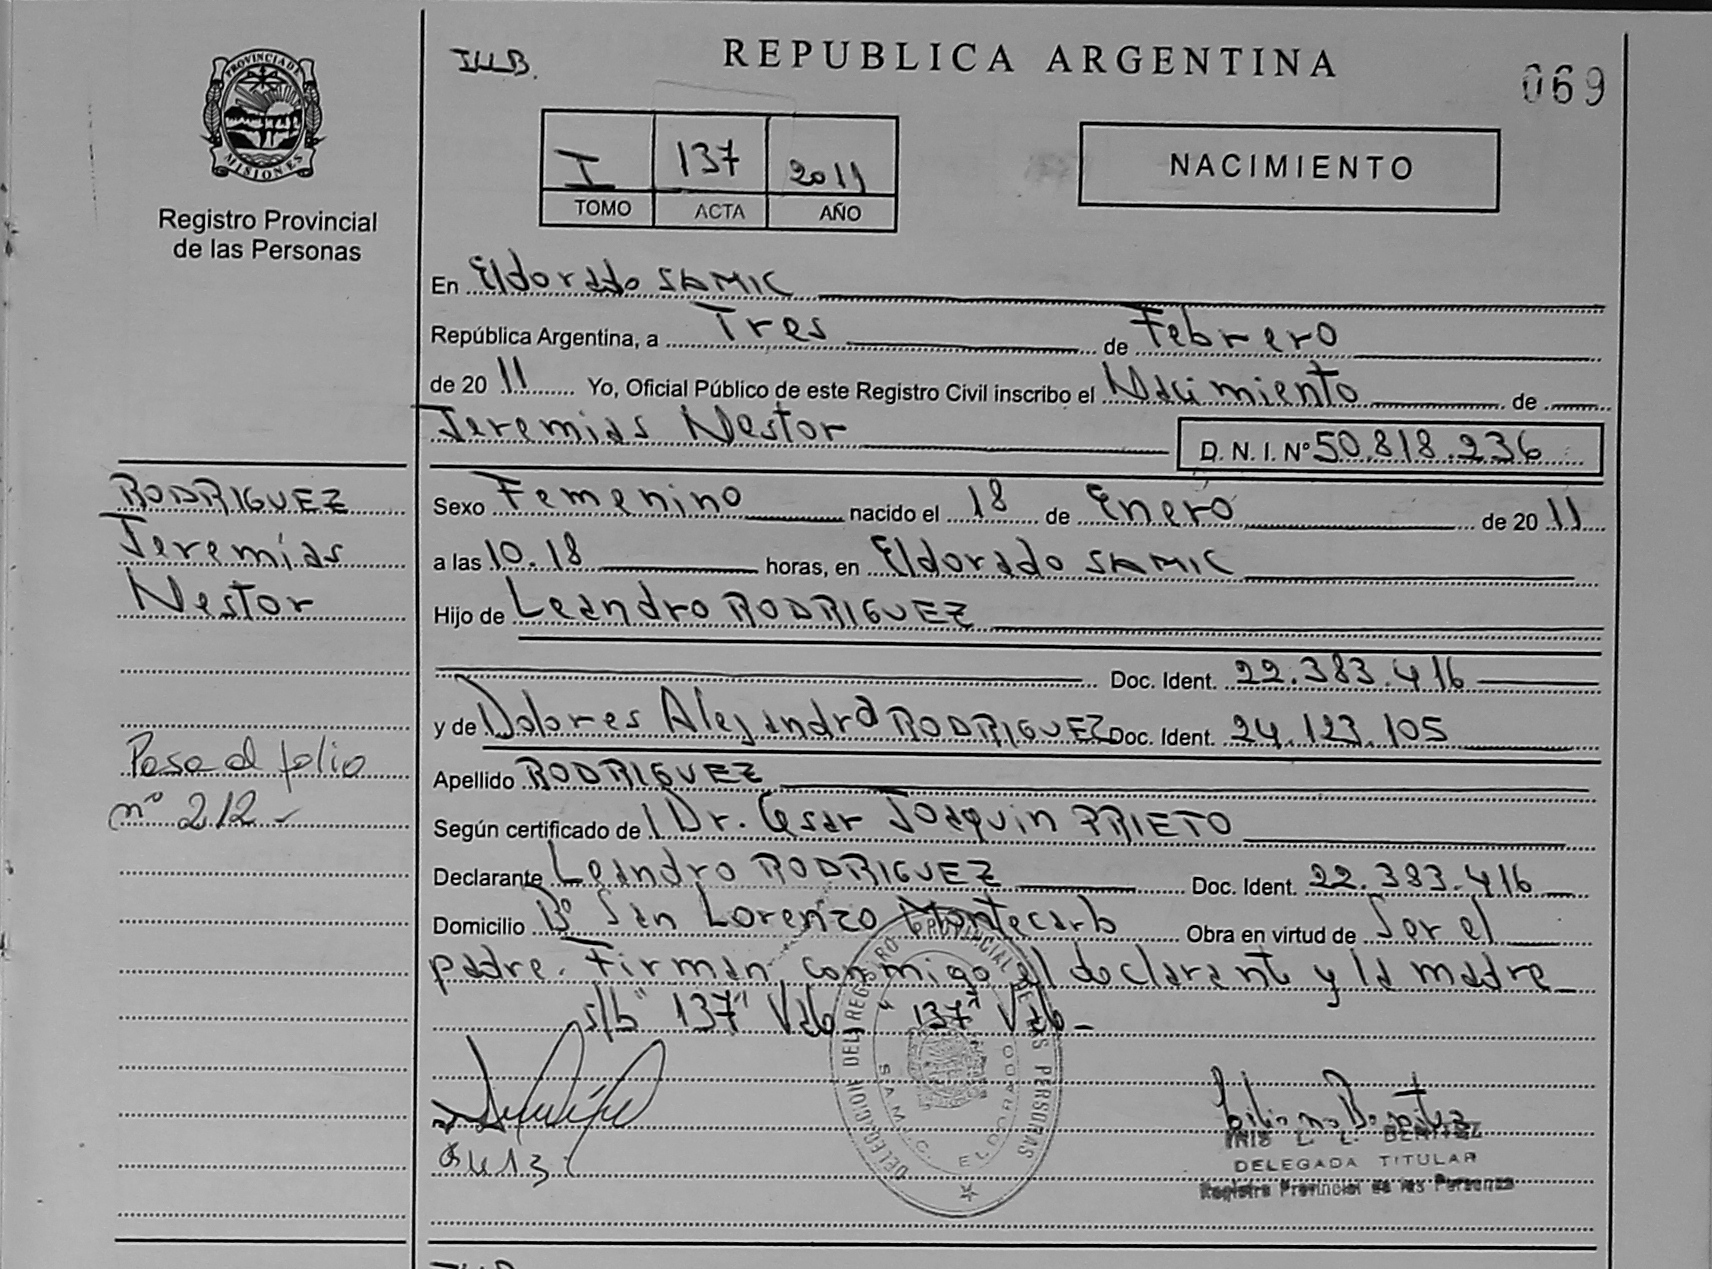 PROVINCIA DE
MISIONES
Registro Provincial
de las Personas
I.LL.B.
REPUBLICA ARGENTINA
069
I 137 2011
TOMO ACTA AÑO
NACIMIENTO
En Eldorado SAMIC
República Argentina, a Tres de Febrero
de 20 11 Yo, Oficial Público de este Registro Civil inscribo el Nacimiento de
Jeremias Nestor D. N. I. Nº 50.818.236
RODRIGUEZ
Jeremías
Nestor
Pasa al folio
nº 212
Sexo Femenino nacido el 18 de Enero de 20 11
a las 10.18 horas, en Eldorado SAMIC
Hijo de Leandro RODRIGUEZ
Doc. Ident. 22.383.416
y de Dolores Alejandra RODRIGUEZ Doc. Ident. 24.123.105
Apellido RODRIGUEZ
Según certificado de Dr. Cesar Joaquin PRIETO
Declarante Leandro RODRIGUEZ Doc. Ident. 22.383.416
Domicilio Bº San Lorenzo Montecarlo Obra en virtud de Ser el
padre. Firman conmigo el declarante y la madre
s/b "137" Vale "137" Vale
DELEGACION DEL REGISTRO PROVINCIAL DE LAS PERSONAS
S.A.M.I.C. ELDORADO
BENITEZ
DELEGADA TITULAR
Registro Provincial de las Personas